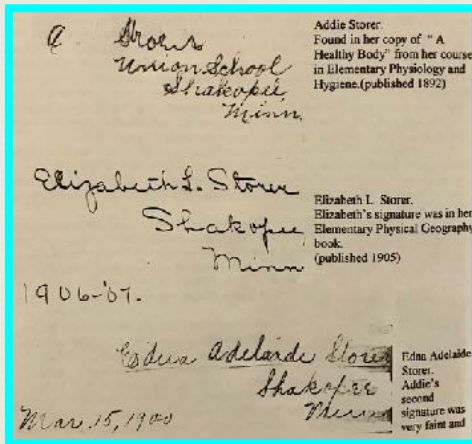 A Storer
Union School
Shakopee
Minn.
Addie Storer.
Found in her copy of "A
Healthy Body" from her course
in Elementary Physiology and
Hygiene.(published 1892)
Elizabeth L. Storer
Shakopee
Minn
1906-'07.
Elizabeth L. Storer.
Elizabeth's signature was in her
Elementary Physical Geography
book.
(published 1905)
Edna Adelaide Storer
Shakopee
Minn
Mar. 15, 1900
Edna Adelaide
Storer.
Addie's
second
signature was
very faint and